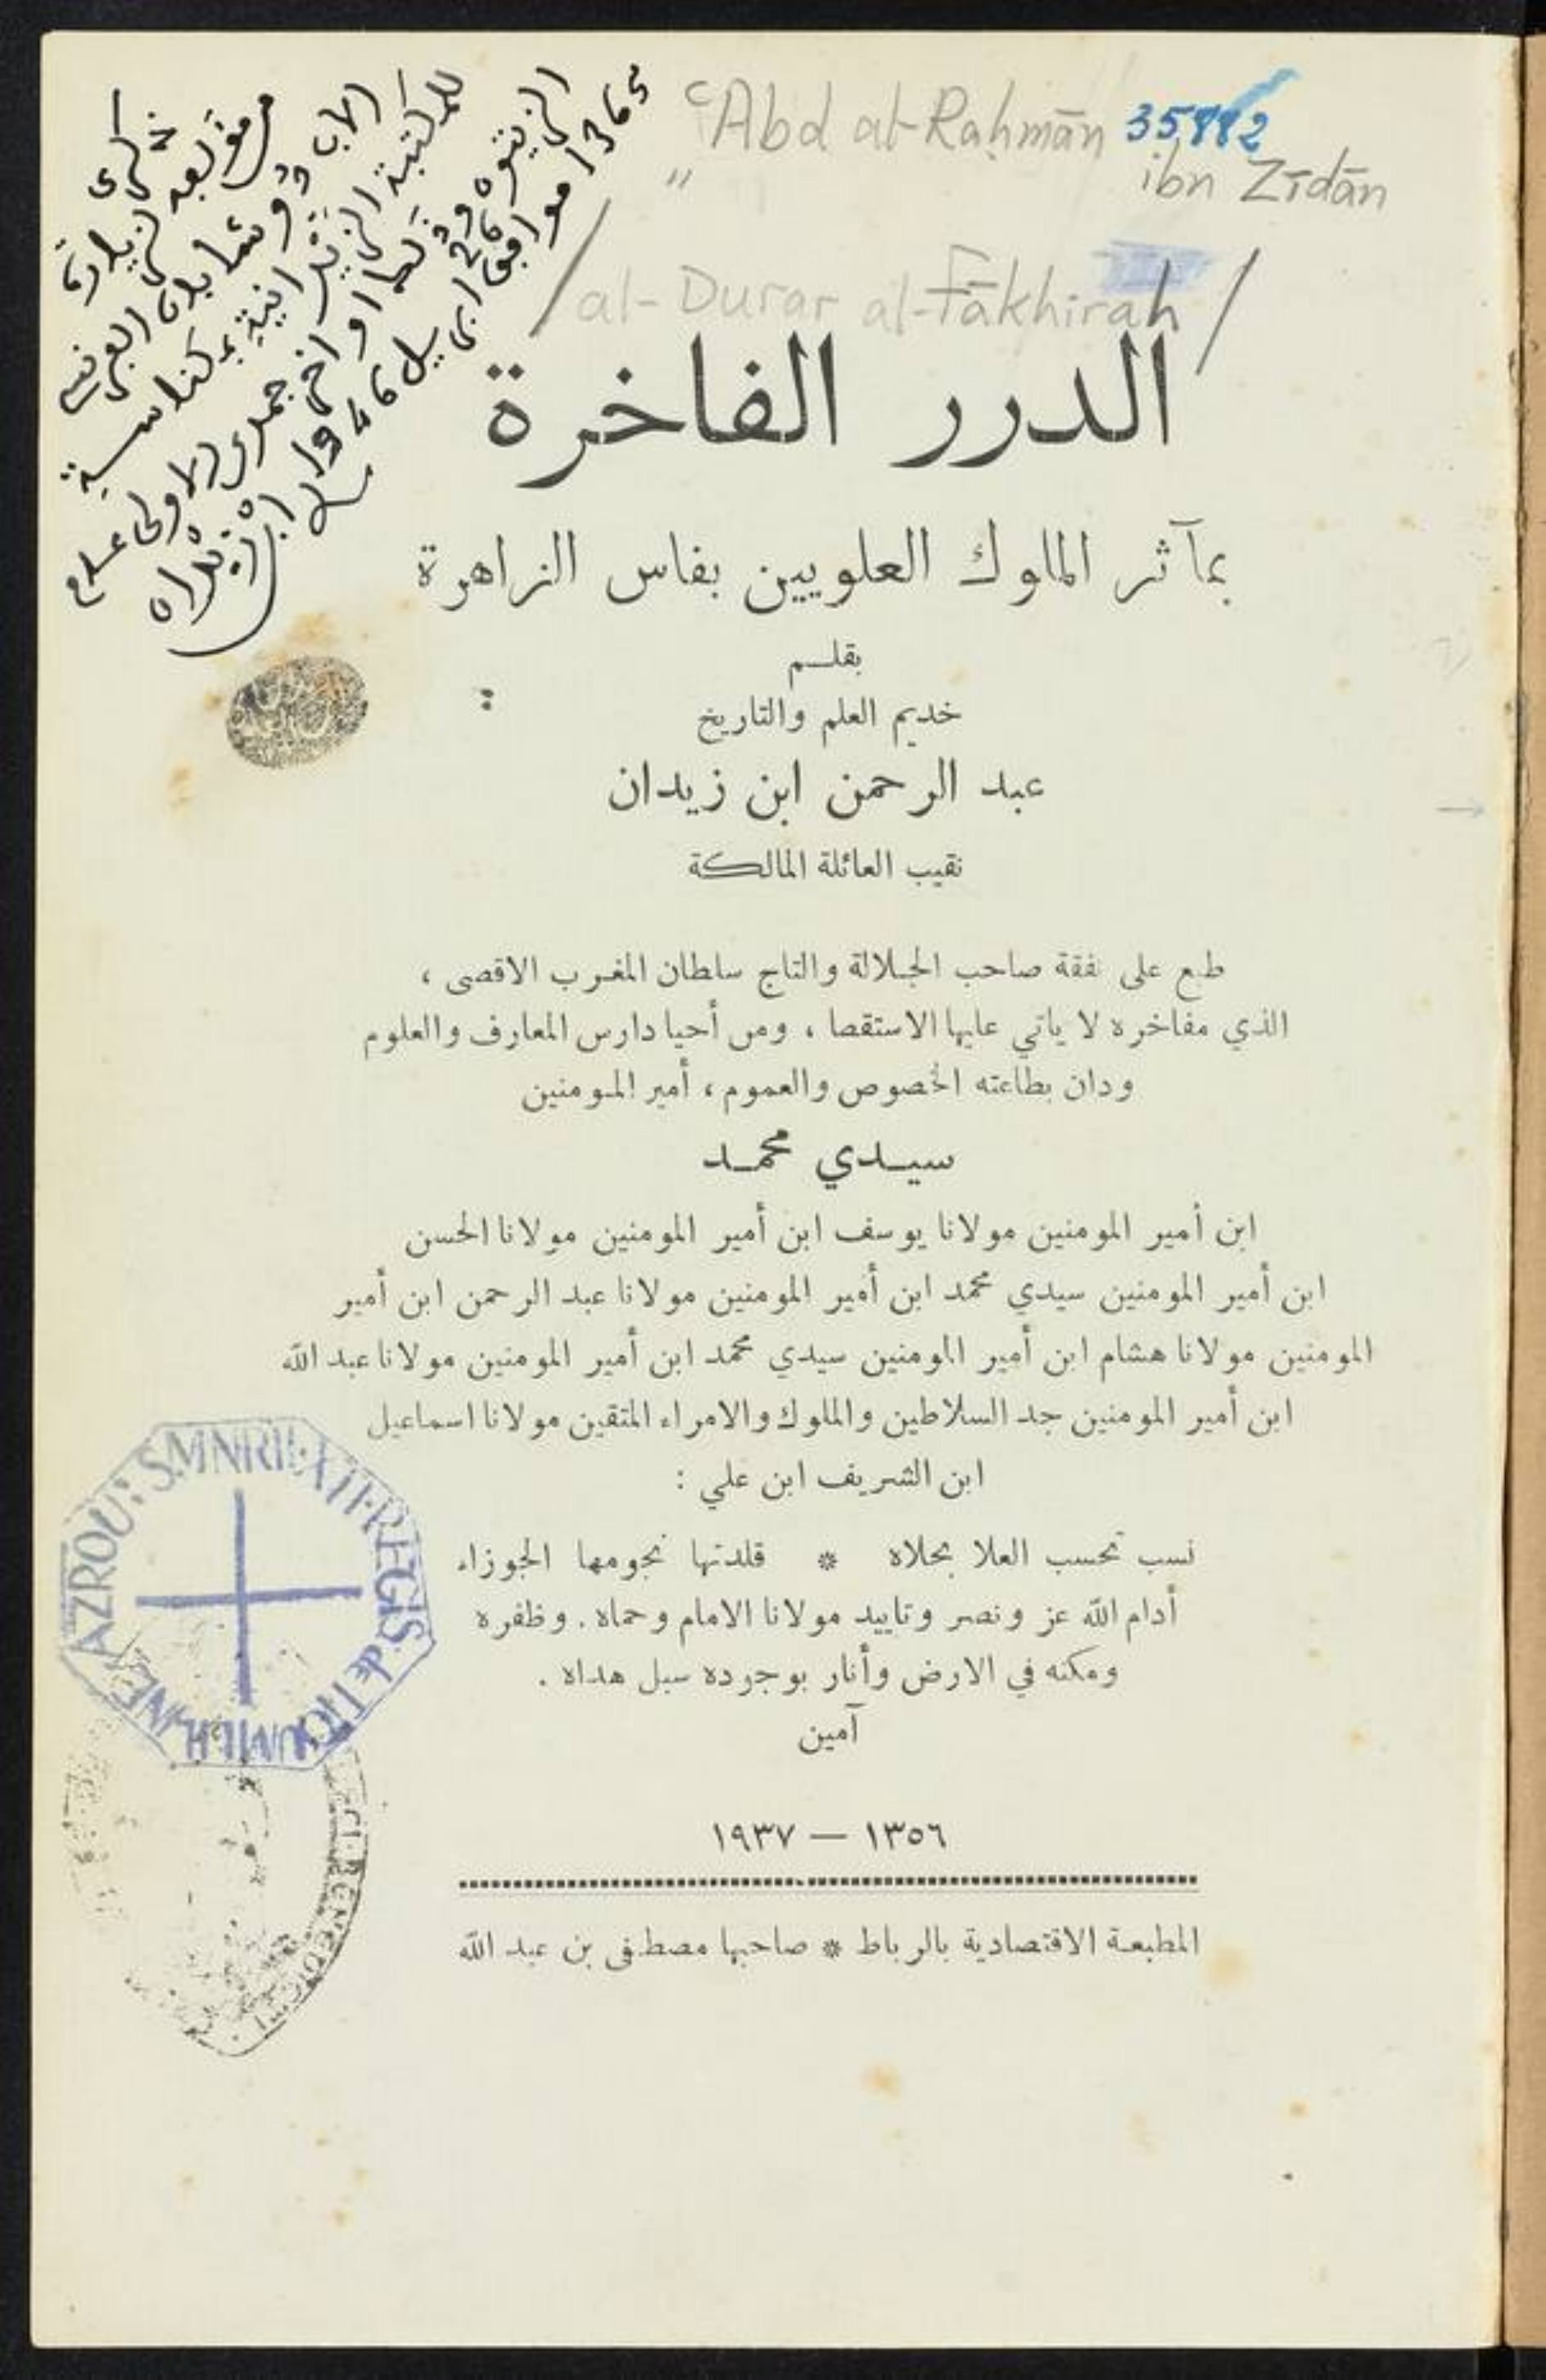 ʿAbd al-Raḥmān 35882
ibn Zīdān
/ al-Durar al-Fākhirah /
ذكرى
مؤلفه لزيارة
الاب
للمكتبة الزيدانية بمكناسة
الزيتون
1365 موافق 26 ابريل 1946
ابن زيدان
الدرر الفاخرة
بمآثر الملوك العلويين بفاس الزاهرة
بقلـم
خديم العلم والتاريخ
عبد الرحمن ابن زيدان
نقيب العائلة المالكة
طبع على نفقة صاحب الجلالة والتاج سلطان المغرب الاقصى ،
الذي مفاخره لا ياتي عليها الاستقصا ، ومن أحيا دارس المعارف والعلوم
ودان بطاعته الخصوص والعموم ، أمير المومنين
سيـدي محمـد
ابن أمير المومنين مولانا يوسف ابن أمير المومنين مولانا الحسن
ابن أمير المومنين سيدي محمد ابن أمير المومنين مولانا عبد الرحمن ابن أمير
المومنين مولانا هشام ابن أمير المومنين سيدي محمد ابن أمير المومنين مولانا عبد الله
ابن أمير المومنين جد السلاطين والملوك والامراء المتقين مولانا اسماعيل
ابن الشريف ابن علي :
نسب تحسب العلا بحلاه * قلدتها نجومها الجوزاء
أدام الله عز ونصر وتاييد مولانا الامام وحماه . وظفره
ومكنه في الارض وأنار بوجوده سبل هداه .
آمين
١٣٥٦ — ١٩٣٧
المطبعة الاقتصادية بالرباط * صاحبها مصطفى بن عبد الله
AZROU